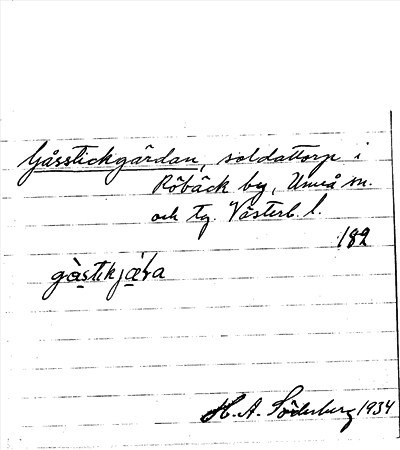 Gåsstickgärdan, soldattorp i
Röbäck by, Umeå sn.
och tg. Västerb. l.
182
H. A. Söderberg 1934